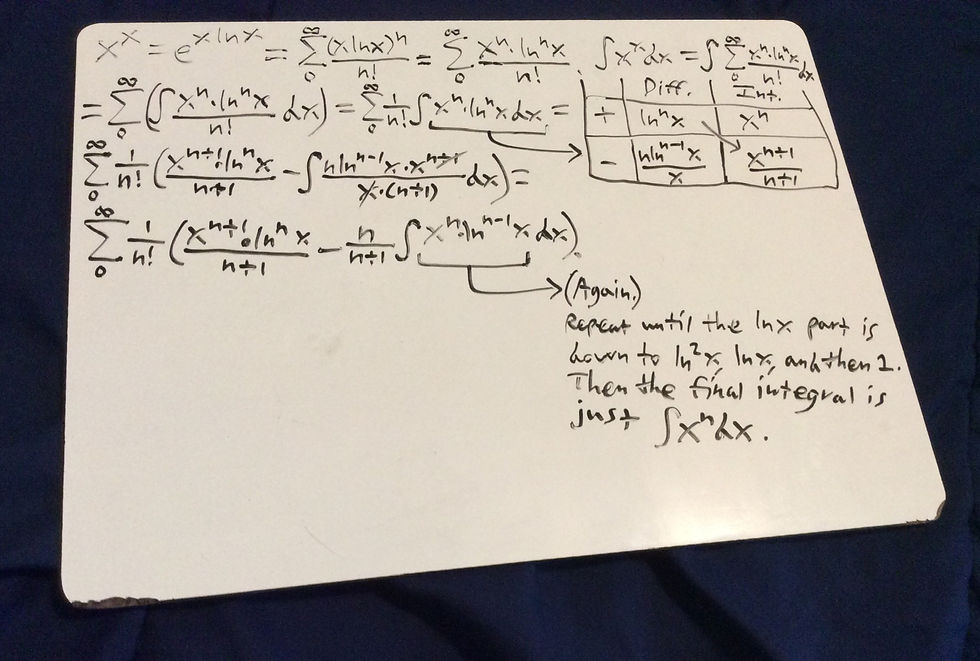 x^x = e^{x ln x} = ∑_0^∞ (x ln x)^n / n! = ∑_0^∞ x^n · ln^n x / n! . ∫ x^x dx = ∫ ∑_0^∞ x^n · ln^n x / n! dx
= ∑_0^∞ ( ∫ x^n · ln^n x / n! dx ) = ∑_0^∞ 1/n! ∫ x^n · ln^n x dx =
Diff. Int.
+ ln^n x x^n
- n ln^{n-1} x / x x^{n+1} / n+1
∑_0^∞ 1/n! ( x^{n+1} · ln^n x / n+1 - ∫ n ln^{n-1} x · x^{n+1} / x · (n+1) dx ) =
∑_0^∞ 1/n! ( x^{n+1} · ln^n x / n+1 - n/n+1 ∫ x^n · ln^{n-1} x dx ).
(Again.)
Repeat until the ln x part is
down to ln^2 x, ln x, and then 1.
Then the final integral is
just ∫ x^n dx.